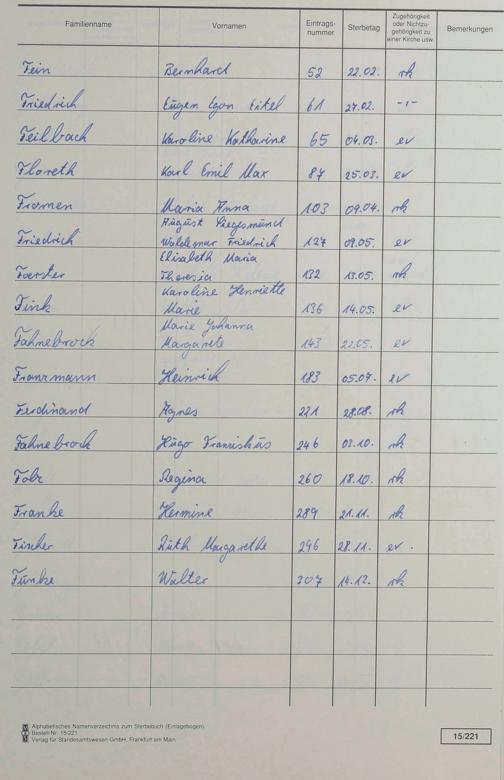 Familienname Vornamen Eintrags-nummer Sterbetag Zugehörigkeit oder Nichtzu-gehörigkeit zu einer Kirche usw. Bemerkungen
Fein Bernhard 52 22.02. rk
Friedrich Eugen Egon Eitel 61 27.02. -"-
Feilbach Karoline Katharine 65 04.03. ev
Floreth Karl Emil Max 87 25.03. ev
Maria Anna 103 09.04. rk
August Siegesmund
Friedrich Waldemar Friedrich 127 09.05. ev
Elisabeth Maria
Foerster Theresia 132 13.05. rk
Karoline Henriette
Fink Marie 136 14.05. ev
Marie Johanna
Fahnebrock Margarete 143 22.05. ev
Franzmann Heinrich 183 05.07. ev
Ferdinand Agnes 221 28.08. rk
Fahnebrock Hugo Franziskus 246 03.10. rk
Regina 260 18.10. rk
Franke Hermine 289 21.11. rk
Fischer Ruth Margarethe 296 28.11. ev.
Funke Walter 307 14.12. rk
Alphabetisches Namenverzeichnis zum Sterbebuch (Einlagebogen)
Bestell-Nr. 15/221
Verlag für Standesamtswesen GmbH, Frankfurt am Main
15/221